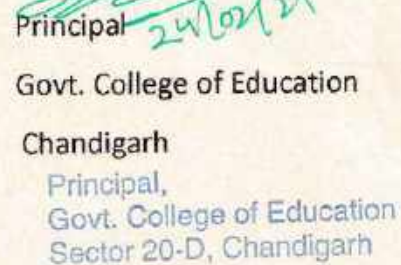 Principal 24/02/21
Govt. College of Education
Chandigarh
Principal,
Govt. College of Education
Sector 20-D, Chandigarh